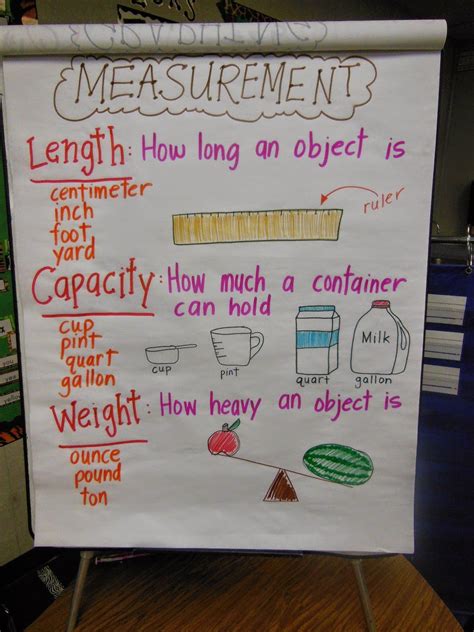 GRAPHING
MEASUREMENT
Length: How long an object is
centimeter
inch
foot
yard
ruler
Capacity: How much a container
can hold
cup
pint
quart
gallon
cup
pint
quart
Milk
gallon
Weight: How heavy an object is
ounce
pound
ton